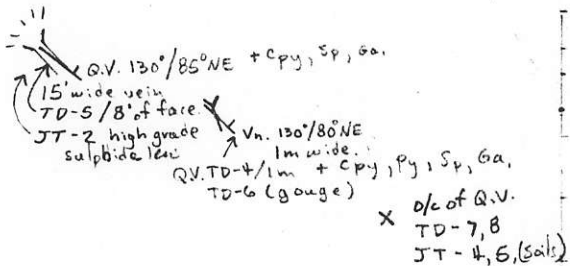 Q.V. 130°/85°NE + Cpy, Sp, Ga.
15' wide vein
TD-5 / 8' of face.
JT-2 high grade
sulphide lens
Vn. 130°/80°NE
1m wide.
Q.V. TD-4/1m + Cpy, py, Sp, Ga,
TD-6 (gouge)
X o/c of Q.V.
TD-7, 8
JT-4, 5, (soils)